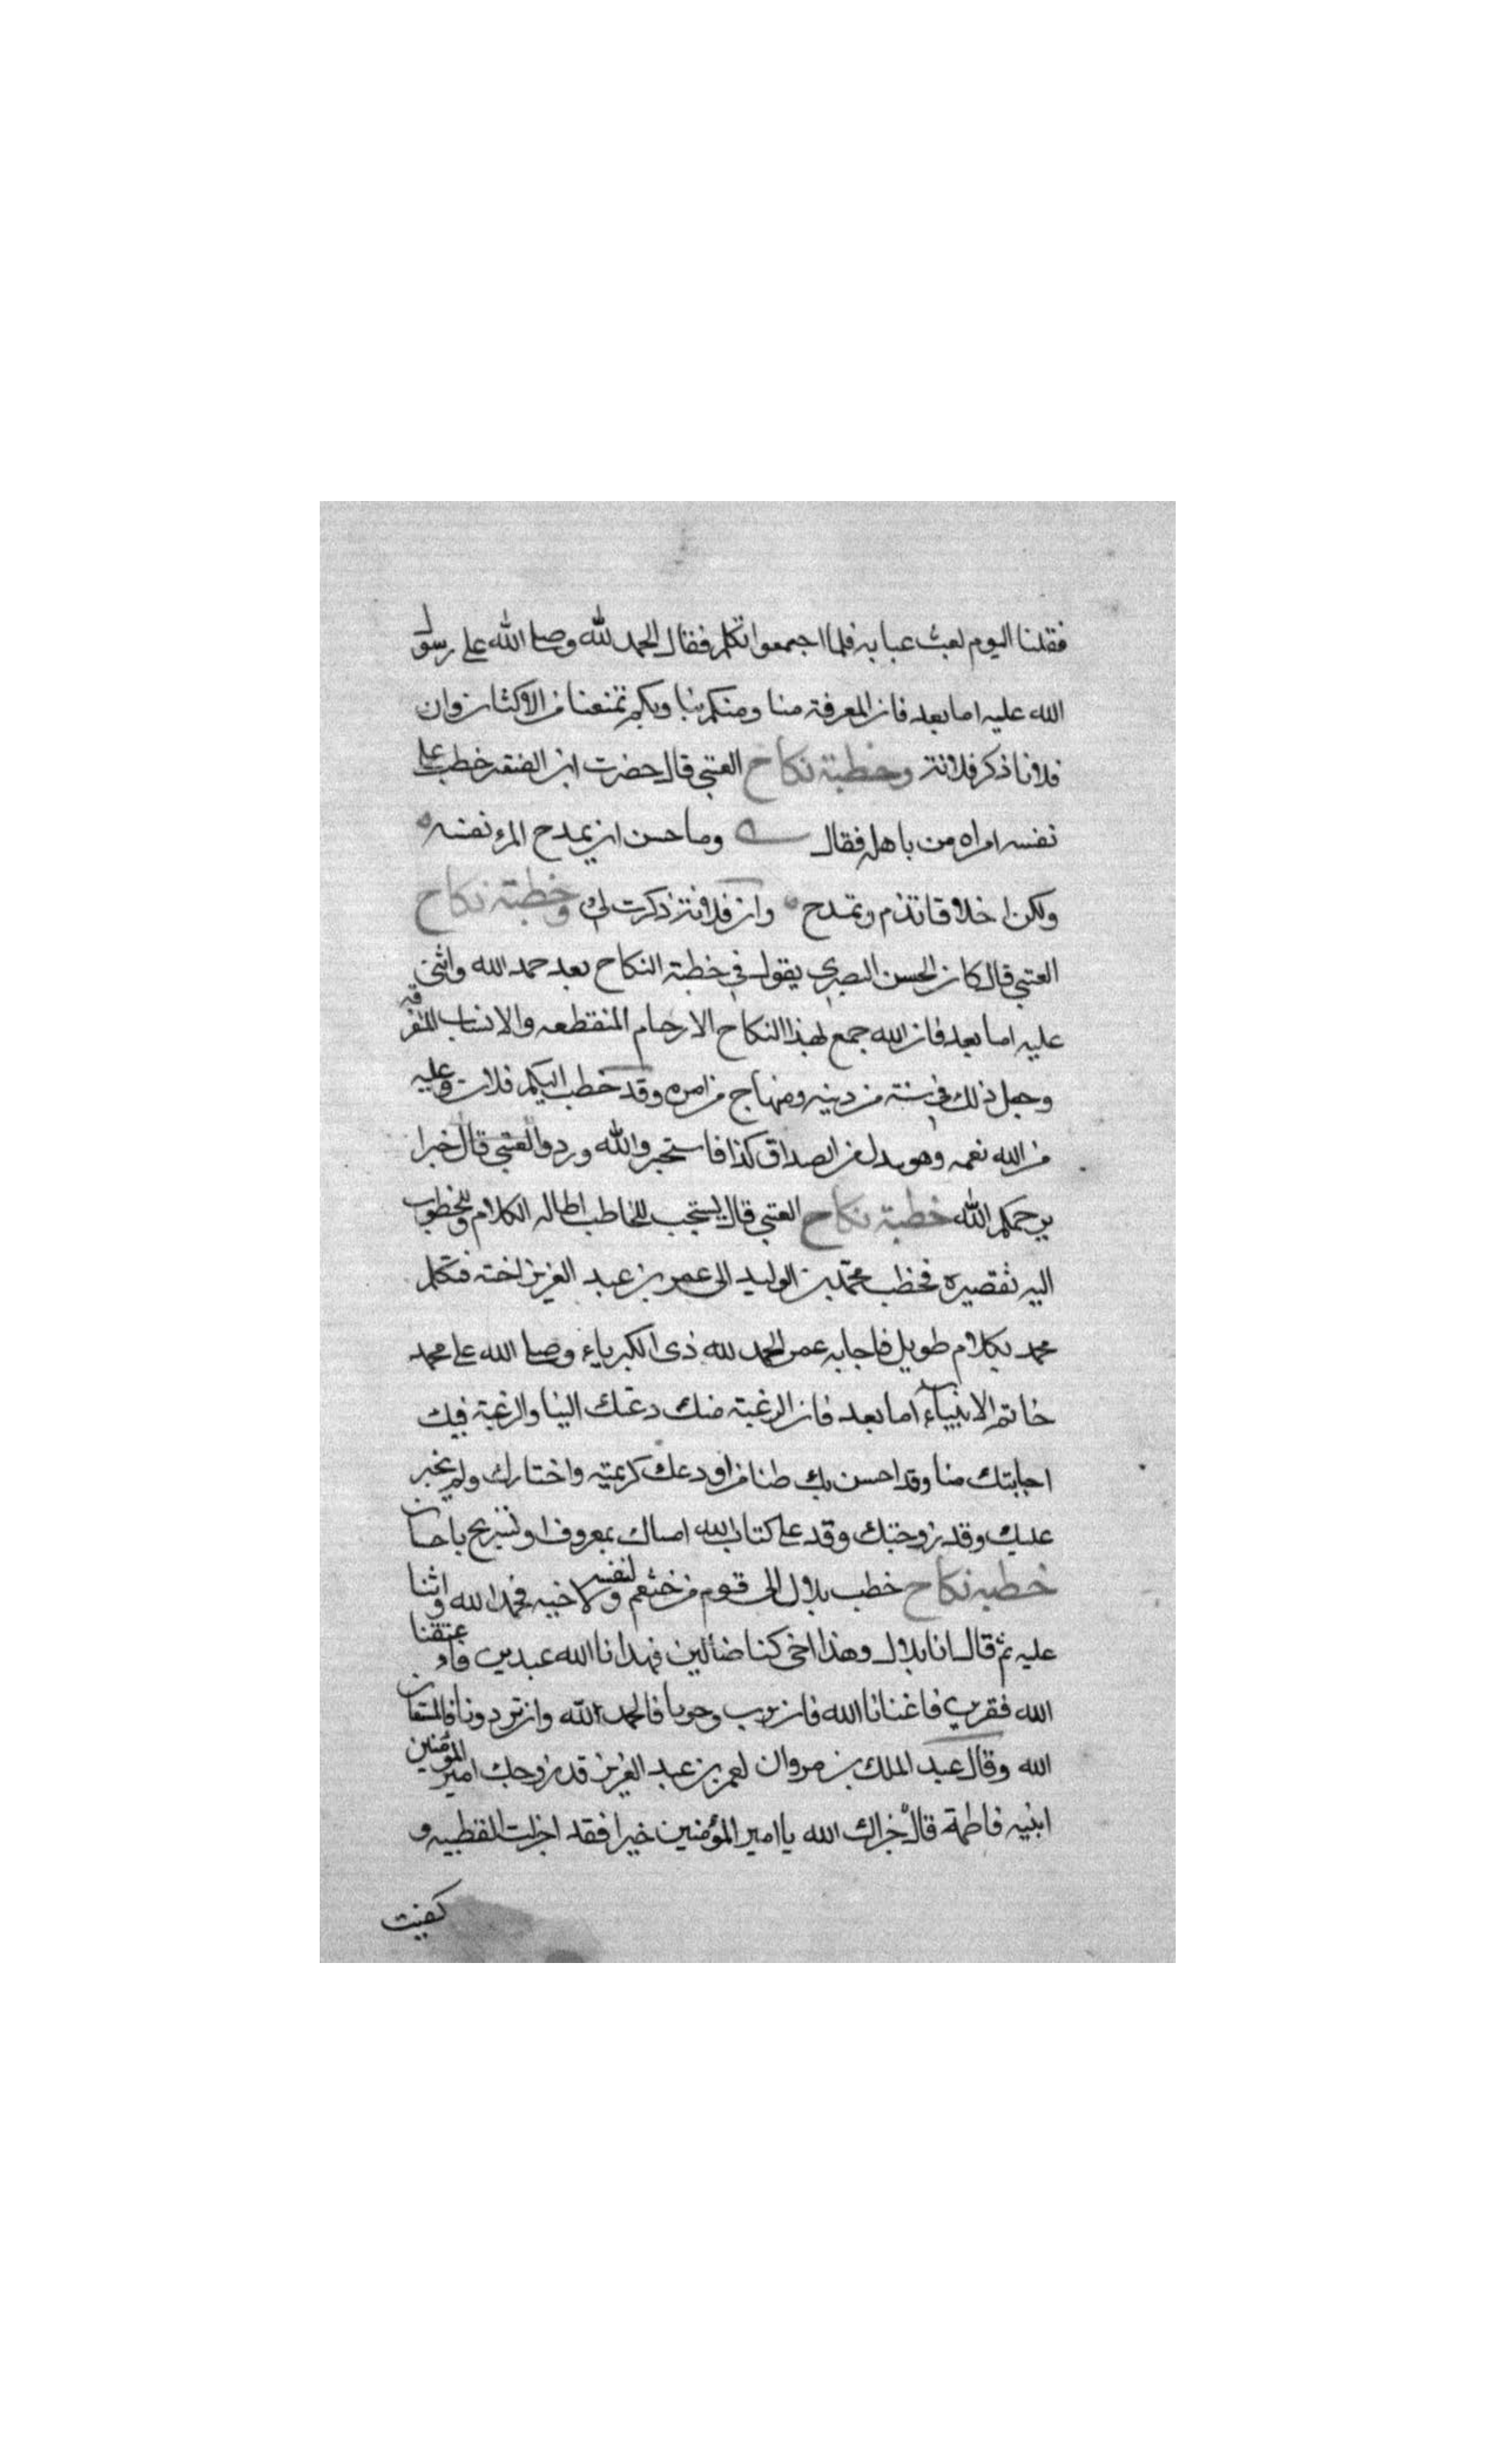 فقلنا اليوم لعبث عبابه فلما اجمعوا تكلم فقال الحمد لله وصلى الله على رسول
الله عليه اما بعد فان المعرفة منا ومنكم بنا وبكم تمنعنا من الاكثار وان
فلانا ذكر فلانة وخطبة نكاح العتبي قال حضرت ابن الفقير خطب على
نفسه امراه من باهله فقال وما حسن ان يمدح المرء نفسه
ولكن اخلاقا تذم وتمدح وان فلانة ذكرت لي وخطبة نكاح
العتبي قال كان الحسن البصري يقول في خطبة النكاح بعد حمد الله واثنى
عليه اما بعد فان الله جمع لهذا النكاح الارحام المنقطعه والانساب المتفرقه
وجعل ذلك في سنة من دينه ومنهاج من امره وقد خطب اليكم فلان وعليه
من الله نعمه وهو يبدل من الصداق كذا فاستخيروا لله وردوا العتبي قال خيرا
يرحمكم الله خطبة نكاح العتبي قال يستحب للخاطب اطاله الكلام وللخطوب
اليه تقصيره فخطب محمد بن الوليد الى عمر بن عبد العزيز اخته فتكلم
محمد بكلام طويل فاجابه عمر الحمد لله ذى الكبرياء وصلى الله على محمد
خاتم الانبياء اما بعد فان الرغبة منك دعتك الينا والرغبة فيك
اجابتك منا وقد احسن بك ظنا من اودعك كريمته واختارك ولم يختر
عليك وقد زوجتك وقد على كتاب الله امساك بمعروف او تسريح باحسان
خطبه نكاح خطب بلال الى قوم من خثعم لنفسه ولاخيه فحمد الله واثنا
عليه ثم قال انا بلال وهذا اخى كنا ضالين فهدانا الله عبدين فاعتقنا
الله فقرين فاغنانا الله فان تزوجونا فالحمد لله وان تردونا فالمستعان
الله وقال عبد الملك بن مروان لعمر بن عبد العزيز قد زوجك امير المؤمنين
ابنيه فاطمة قال جزاك الله يا امير المؤمنين خيرا فقد اجزلت العطيه و
كفيت